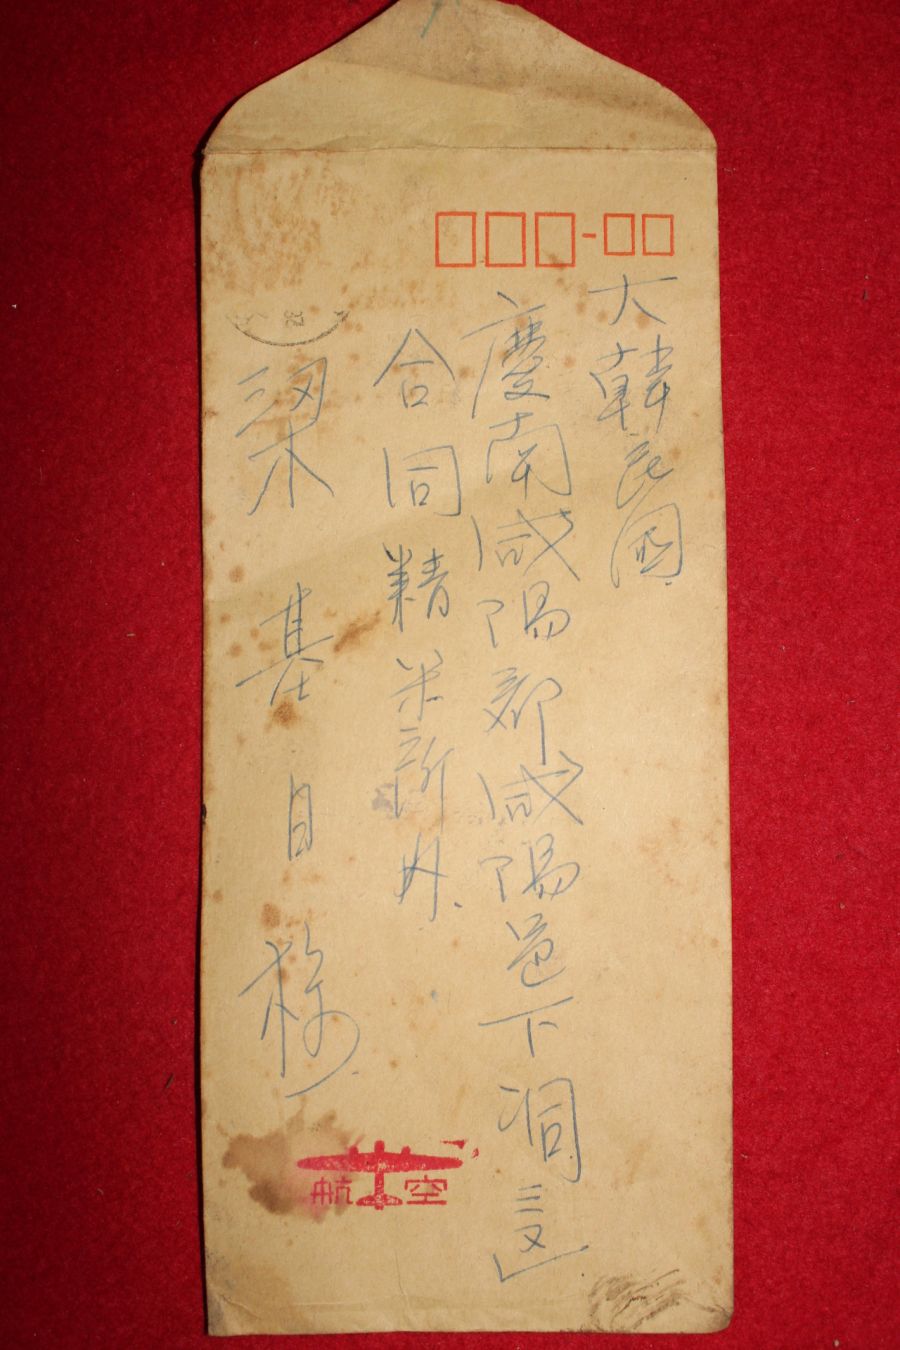 大韓民国
慶南咸陽郡咸陽邑下洞三区
合同精米所内
梁基目様
航空